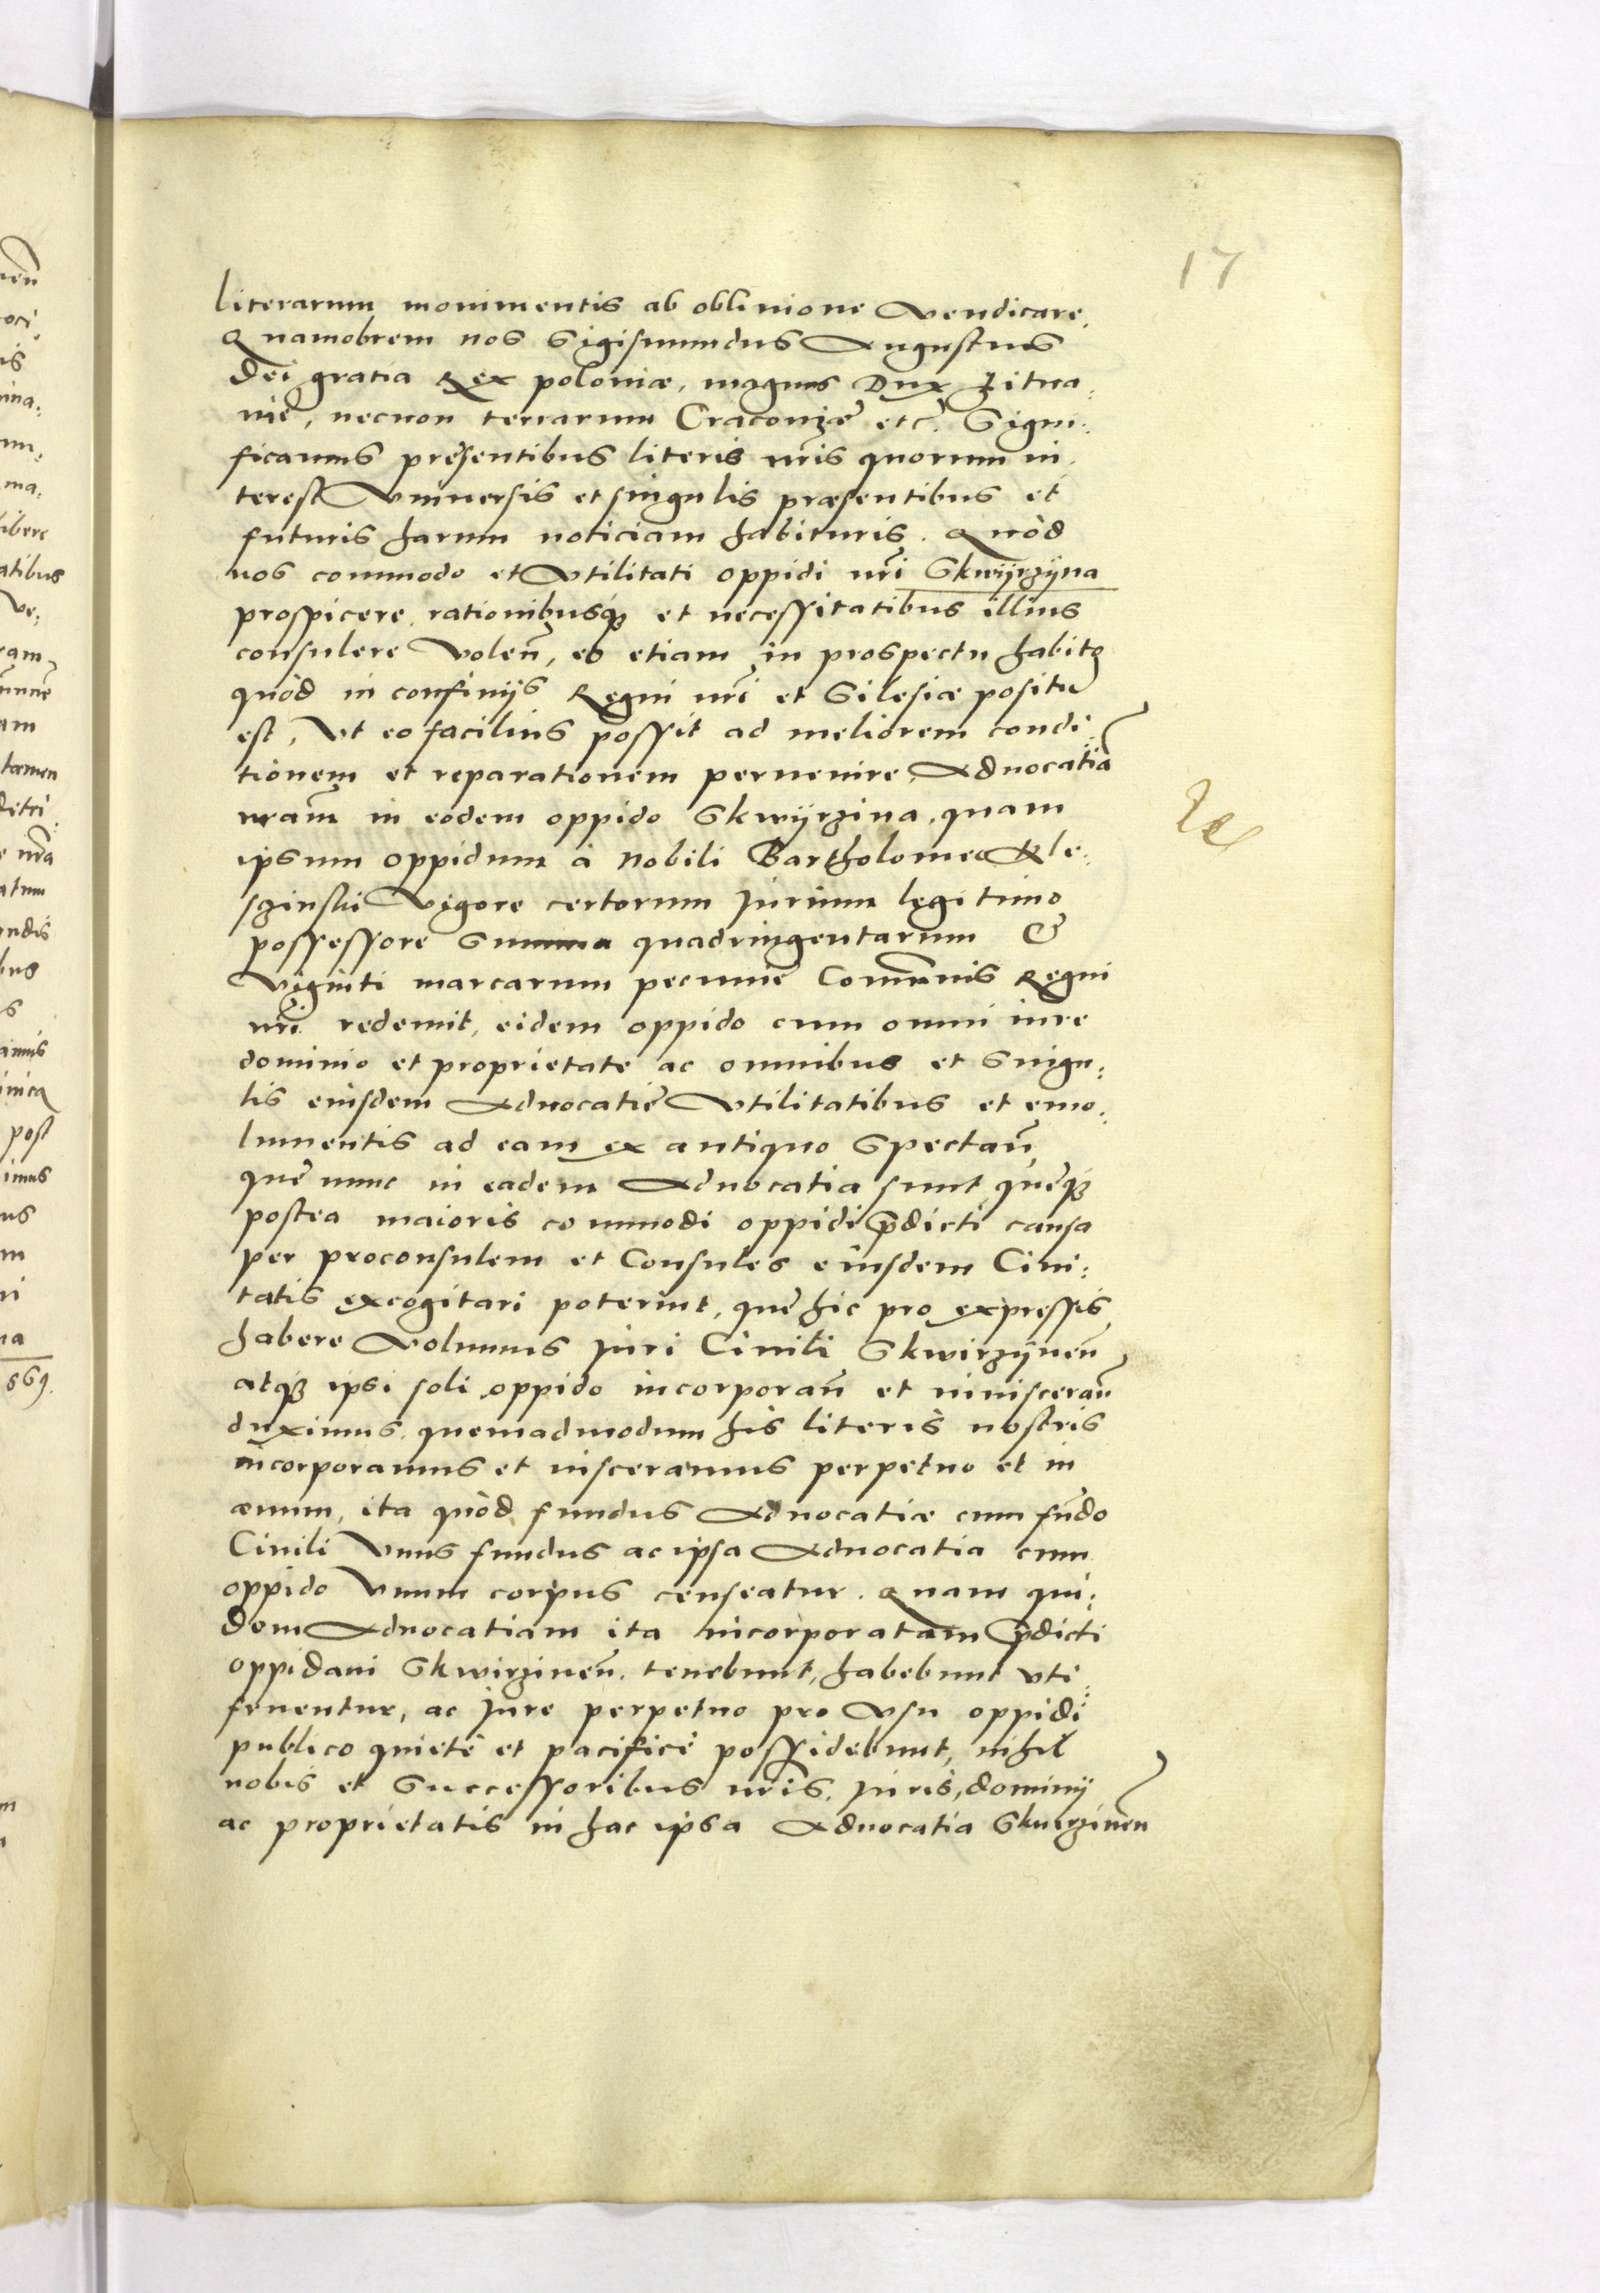 17
literarum monimentis ab obliuione Vendicare.
Quamobrem nos Sigismundus Augustus
Dei gratia Rex poloniæ, magnus Dux Litua:
nię, necnon terrarum Cracouię etc̃. Signi:
ficamus pręsentibus literis nr̃is quorum in
terest Vniuersis et singulis præsentibus et
futuris harum noticiam habituris. Quòd
nos commodo et Vtilitati oppidi nr̃i Skwÿrzÿna
prospicere, rationibusqꝫ et necessitatibus illius
consulere Volen̄, eo etiam in prospectu habito
quòd in confinijs Regni nr̃i et Silesiæ positũ
est, Vt eo facilius possit ad meliorem condi:
tionem et reparationem peruenire, Aduocatiã
nr̃am in eodem oppido Skwÿrzina, quam
ipsum oppidum à Nobili Bartholomeo Ale:
szinski Vigore certorum Jurium legitimo
possessore Summa quadringentarum &
Viginti marcarum pecunię Com̃unis Regni
nr̃i redemit, eidem oppido cum omni iure
dominio et proprietate ac omnibus et Singu:
lis eiusdem Aduocatię Vtilitatibus et emo:
lumentis ad eam ex antiquo Spectan̄,
quę nunc in eadem Aduocatia sunt, quęqꝫ
postea maioris commodi oppidi p̃dicti causa
per proconsulem et Consules eiusdem Ciui:
tatis excogitari poterint, quę hic pro expressis
habere Volumus Juri Ciuili Skwirzÿnen̄
atqꝫ ipsi soli oppido incorporan̄ et inuisceran̄
duximus, quemadmodum his literis nostris
incorporamus et inisceramus perpetuo et in
æuum, ita quòd fundus Aduocatiæ cum fũdo
Ciuili Vnus fundus ac ipsa Aduocatia cum
oppido Vnum corpus censeatur. Quam qui:
dem Aduocatiam ita incorporatam p̃dicti
oppidani Skwirzinen̄. tenebunt, habebunt vtē:
fruentur, ac Jure perpetuo pro Vsu oppidi
publico quietè et pacificè possidebunt, nihil
nobis et Successoribus nr̃is, Juris, dominij
ac proprietatis in hac ipsa Aduocatia Skwirzinen̄